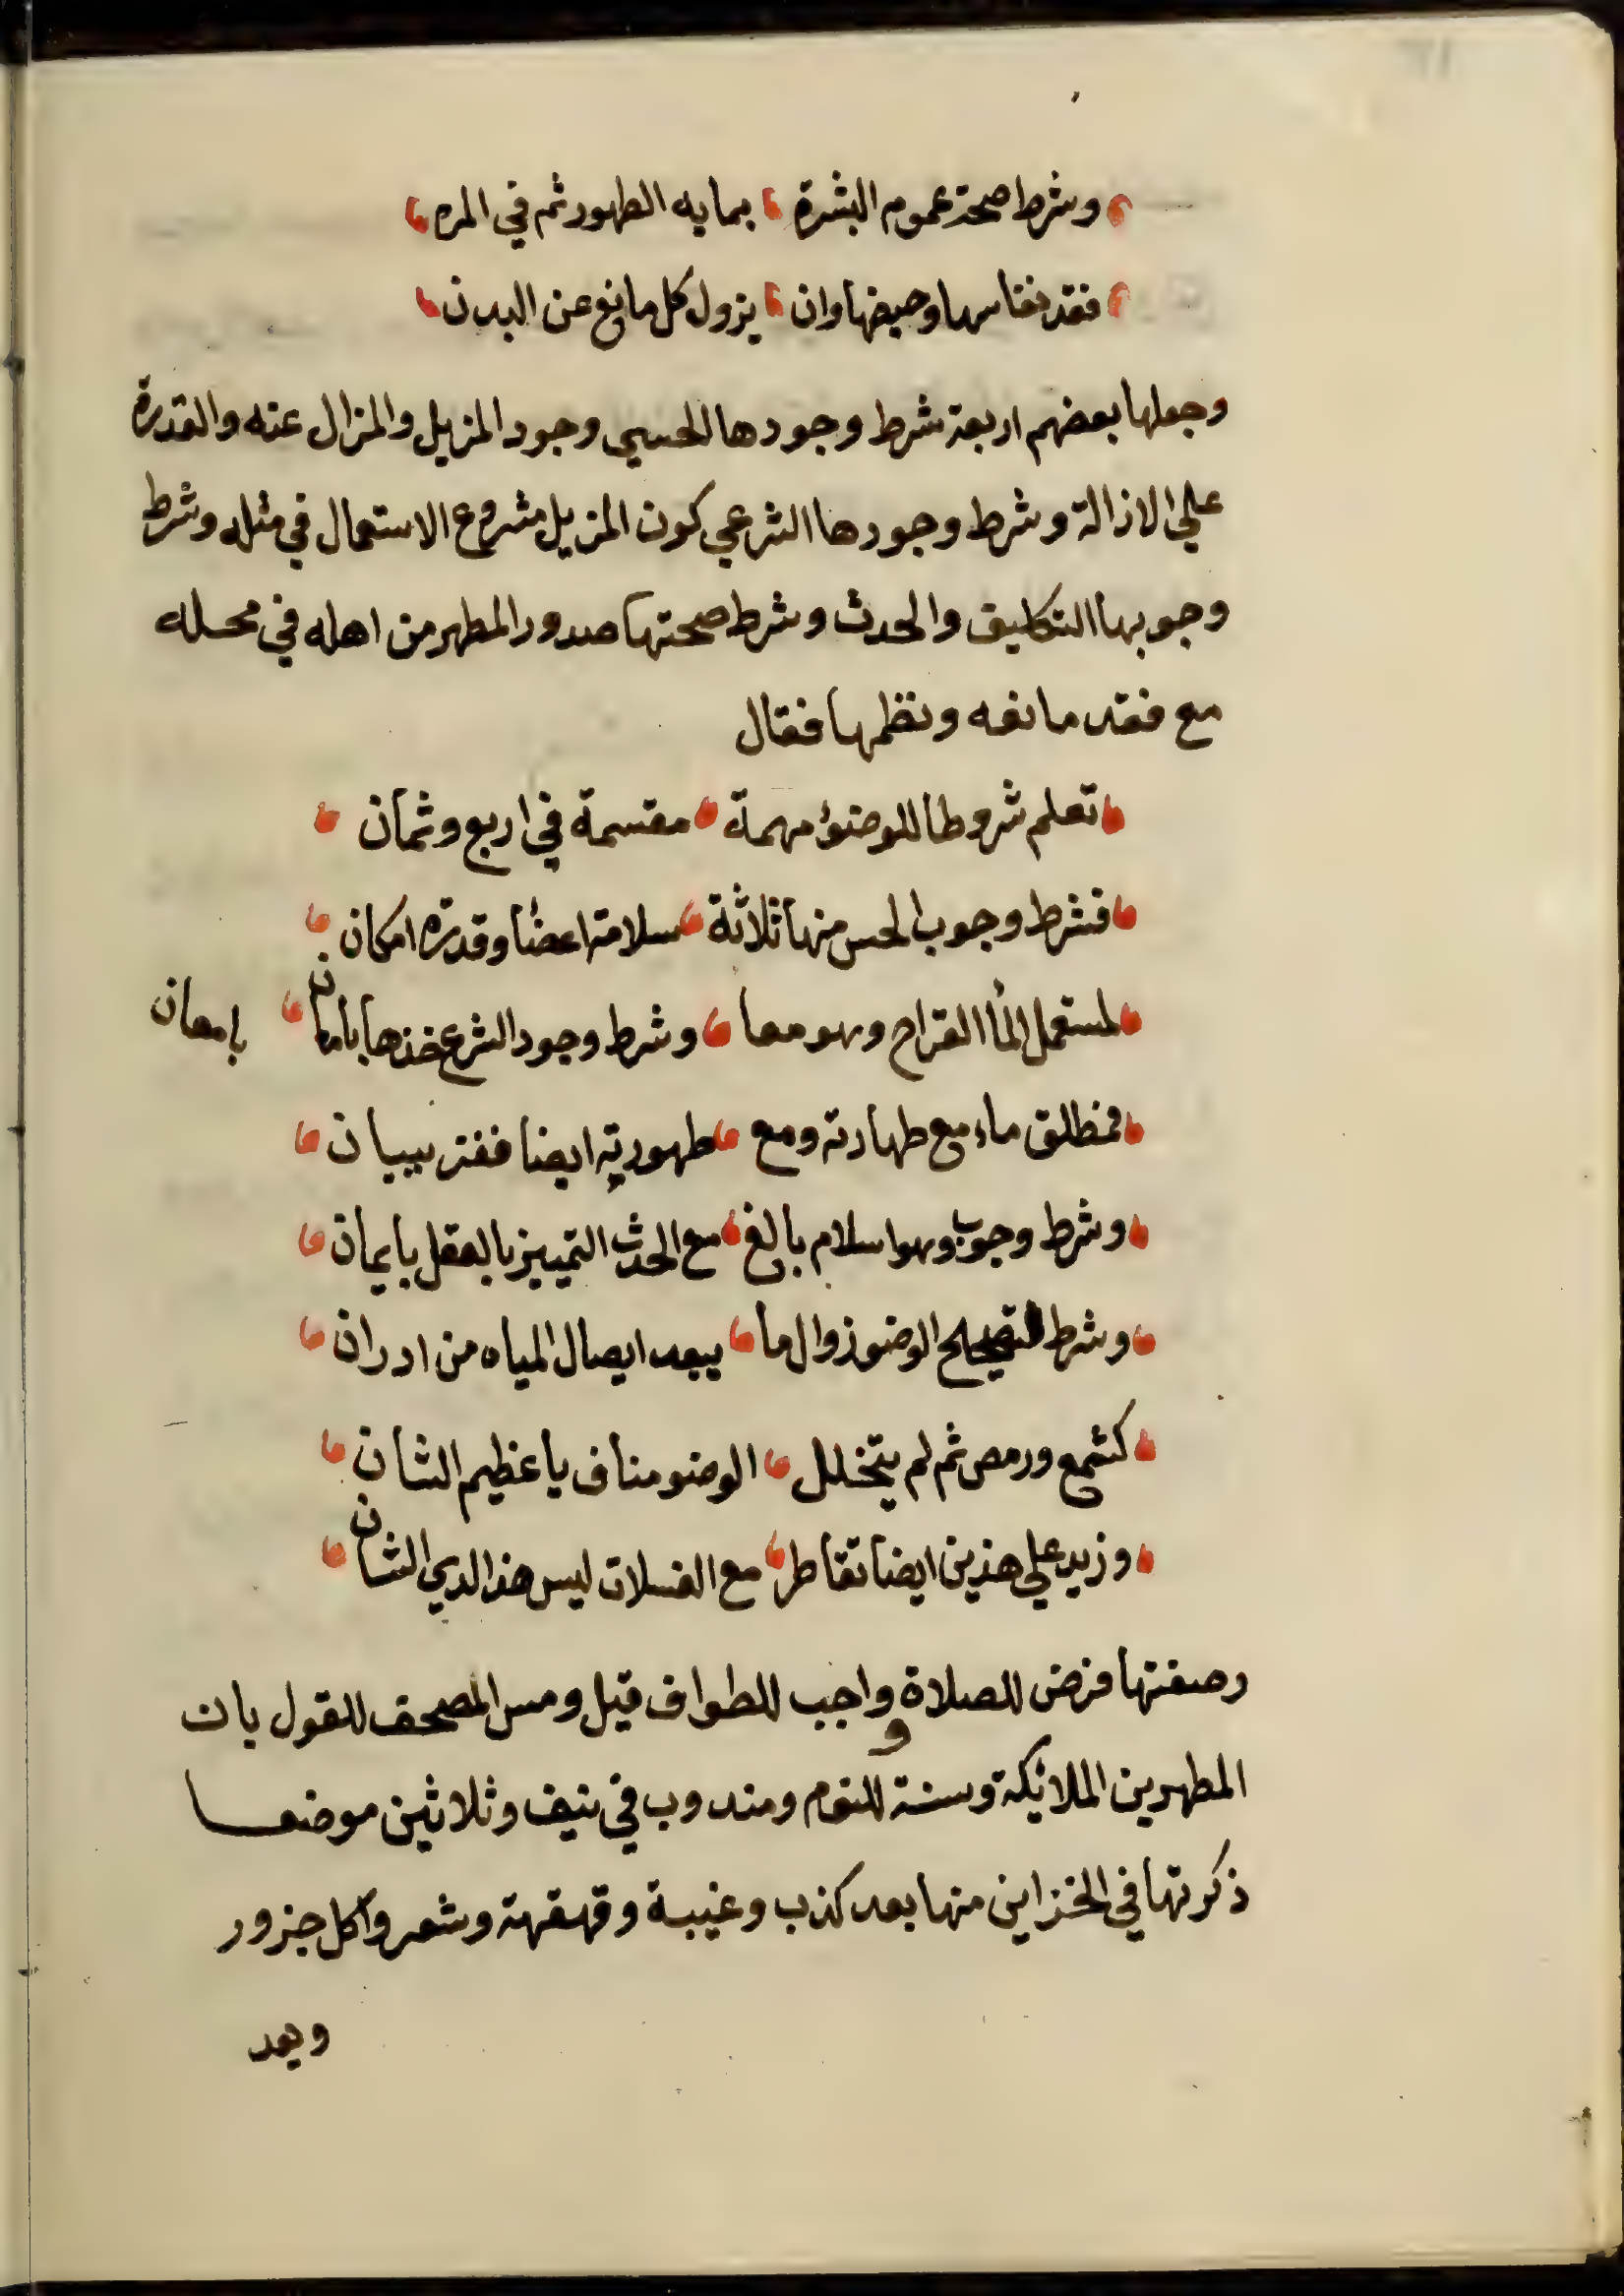 وشرط صحة عموم البشرة بمايه الطهور ثم في المره
فقد نفاسها وحيضها وان يزول كل مانع عن البدن
وجعلها بعضهم اربعة شرط وجودها الحسي وجود المزيل والمزال عنه والقدرة
علي الازالة وشرط وجودها الشرعي كون المزيل مشروع الاستعمال في مثله وشرط
وجوبها التكليف والحدث وشرط صحتها صدور المطهر من اهله في محله
مع فقد مانعه ونظمها فقال
تعلم شروطا للوضوء مهمة مقسمة في اربع وثمان
فشرط وجوب الحس منها ثلاثة سلامة اعضا وقدرة امكان
لمستعمل الما القراح وهو معا وشرط وجود الشرع خذها بامان
بامعان
فمطلق ماء مع طهارته ومع طهوريته ايضا ففز ببيان
وشرط وجوب وهو اسلام بالغ مع الحدث التمييز بالعقل بايمان
وشرط لتصحيح الوضو زوال ما يبعد ايصال المياه من ادران
كشمع ورمص ثم لم يتخلل الوضو مناف يا عظيم الشان
وزيد علي هذين ايضا تقاطر مع الغسلات ليس هذا لدي الشان
وصفتها فرض للصلاة وواجب للطواف قيل ومس المصحف للقول بان
المطهرين الملائكة وسنة للنوم ومندوب في نيف وثلاثين موضعا
ذكرتها في الخزاين منها بعد كذب وغيبة وقهقهة وشعر واكل جزور
وبعد